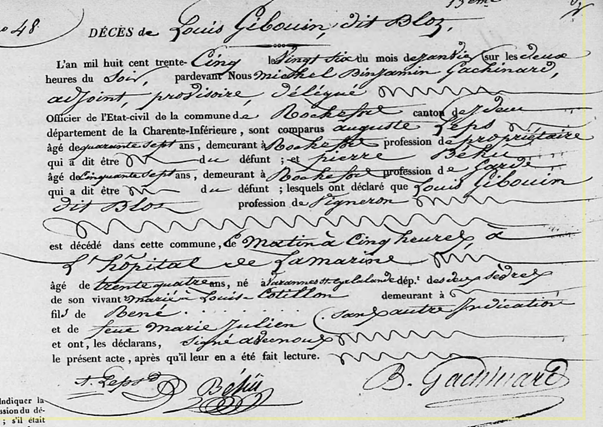 no 48
DÉCÈS de Louis Gibouin, dit Bloz,
L'AN mil huit cent trente-Cinq le Vingt Six du mois de janvier sur les deux
heures du Soir, pardevant Nous Michel Binjamin Gachinard,
adjoint, provisoire, délégué
Officier de l'Etat-civil de la commune de Rochefort canton de
département de la Charente-Inférieure, sont comparus auguste Leps
âgé de quarante Sept ans, demeurant à Rochefort profession de propriétaire
qui a dit être du défunt; et pierre Béhu
âgé de Cinquante Sept ans, demeurant à Rochefort profession de Garde
qui a dit être du défunt; lesquels ont déclaré que Louis Gibouin
dit Bloz profession de Vigneron
est décédé dans cette commune, le Matin à Cinq heures a
L'hôpital de Lamarine
âgé de trente quatre ans, né à dép.t des deux Sèvres
de son vivant Marié à Louise Cotillon demeurant à
fils de René. Sans autre Indication
et de feue Marie Julien
et ont, les déclarans, signé avec nous
le présent acte, après qu'il leur en a été fait lecture.
A. Leps Béhu B. Gachinard
Indiquer la
ssion du dé-
; s'il était